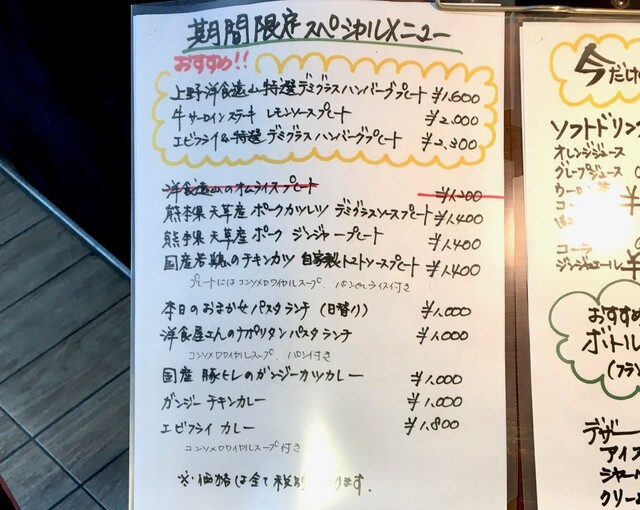 期間限定スペシャルメニュー
おすすめ!!
上野洋食遠山特選デミグラスハンバーグプレート ¥1.600
牛サーロインステーキ レモンソースプレート ¥2.000
エビフライ&特選デミグラスハンバーグプレート ¥2.300
洋食遠山のオムライスプレート ¥1.200
熊本県天草産ポークカツレツ デミグラスソースプレート ¥1.400
熊本県天草産ポーク ジンジャープレート
国産若鶏のチキンカツ 自家製トマトソースプレート ¥1.400
プレートにはコンソメロワイヤルスープ、パンorライス付き
本日のおまかせパスタランチ (日替り) ¥1.000
洋食屋さんのナポリタンパスタランチ ¥1.000
コンソメロワイヤルスープ、パン付き
国産豚ヒレのガンジーカツカレー ¥1.000
ガンジーチキンカレー ¥1.000
エビフライカレー ¥1.800
コンソメロワイヤルスープ付き
※価格は全て税別 ります.
今だけ
ソフトドリンク
オレンジジュース
グレープジュース
ウーロン茶
コーラ
ジンジャエール ¥
おすすめ
ボトル
(フラン
デザー
アイス
シャー
クリー